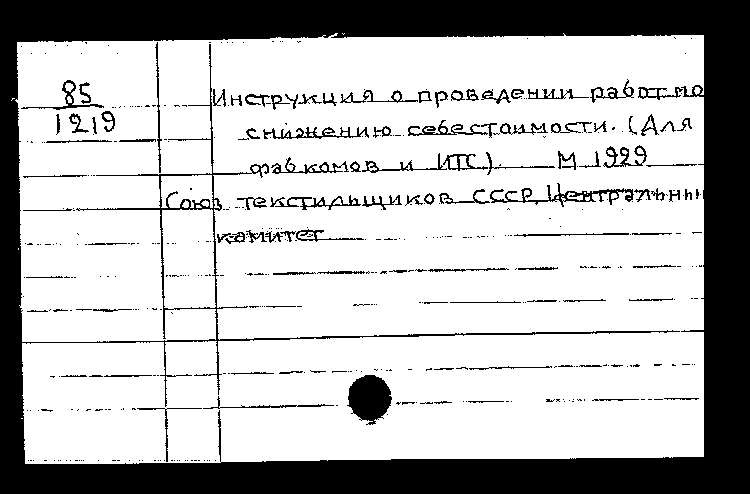 85
1219
Инструкция о проведении работ по
снижению себестоимости. (Для
фабкомов и ИТС). М 1929
Союз текстильщиков СССР. Центральны
комитет